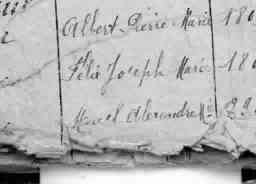 Albert Pierre Marie 180
Félix Joseph Marie 180
Marcel Alexandre M